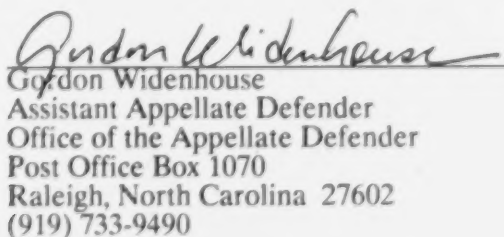 Gordon Widenhouse
Gordon Widenhouse
Assistant Appellate Defender
Office of the Appellate Defender
Post Office Box 1070
Raleigh, North Carolina 27602
(919) 733-9490